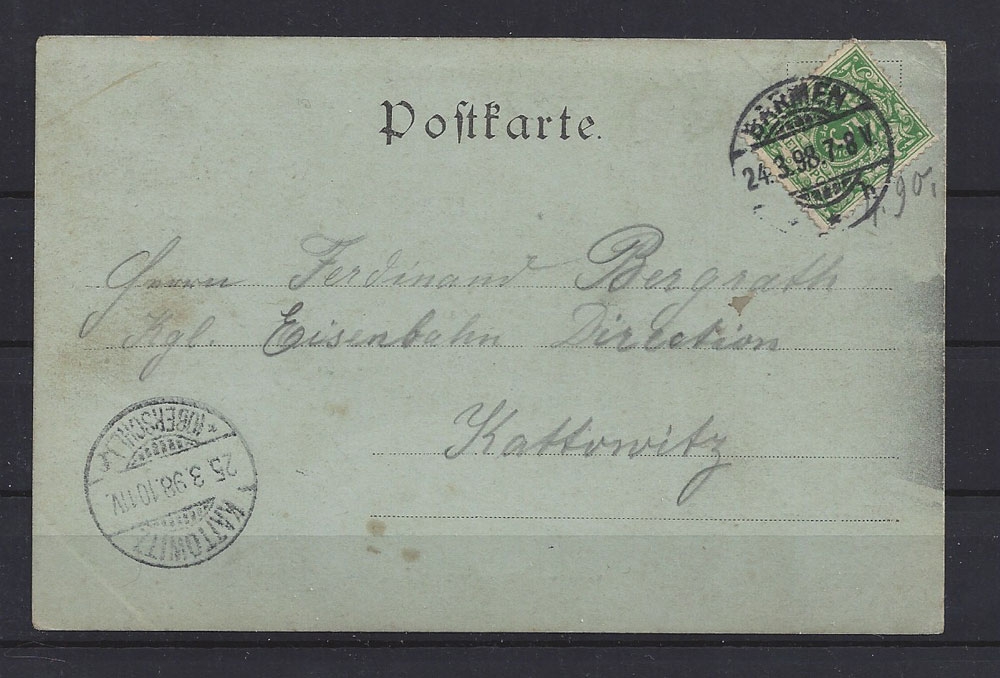 Postkarte.
BARMEN
24.3.98.7-8V.
h
1.90.
Herrn Ferdinand Bergrath
Kgl. Eisenbahn Direction
Kattowitz
KATTOWITZ
25.3.98.10-11V.